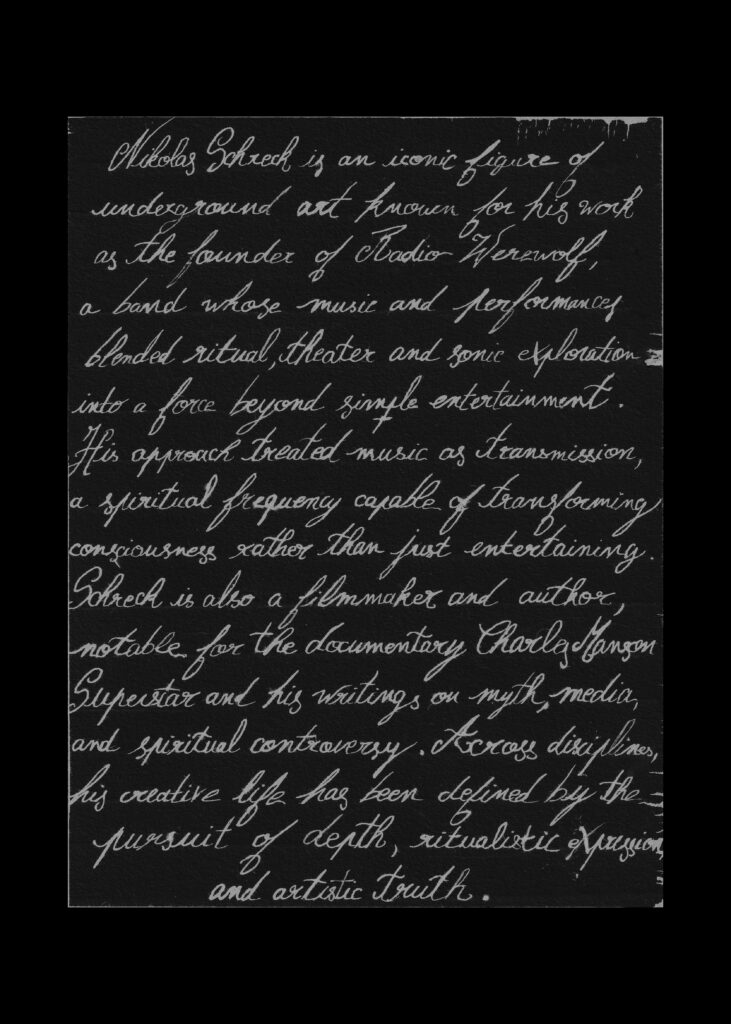 Nikolas Schreck is an iconic figure of
underground art known for his work
as the founder of Radio Werewolf,
a band whose music and performances
blended ritual, theater and sonic exploration
into a force beyond simple entertainment.
His approach treated music as transmission,
a spiritual frequency capable of transforming
consciousness rather than just entertaining.
Schreck is also a filmmaker and author,
notable for the documentary Charles Manson
Superstar and his writings on myth, media,
and spiritual controversy. Across disciplines,
his creative life has been defined by the
pursuit of depth, ritualistic expression,
and artistic truth.